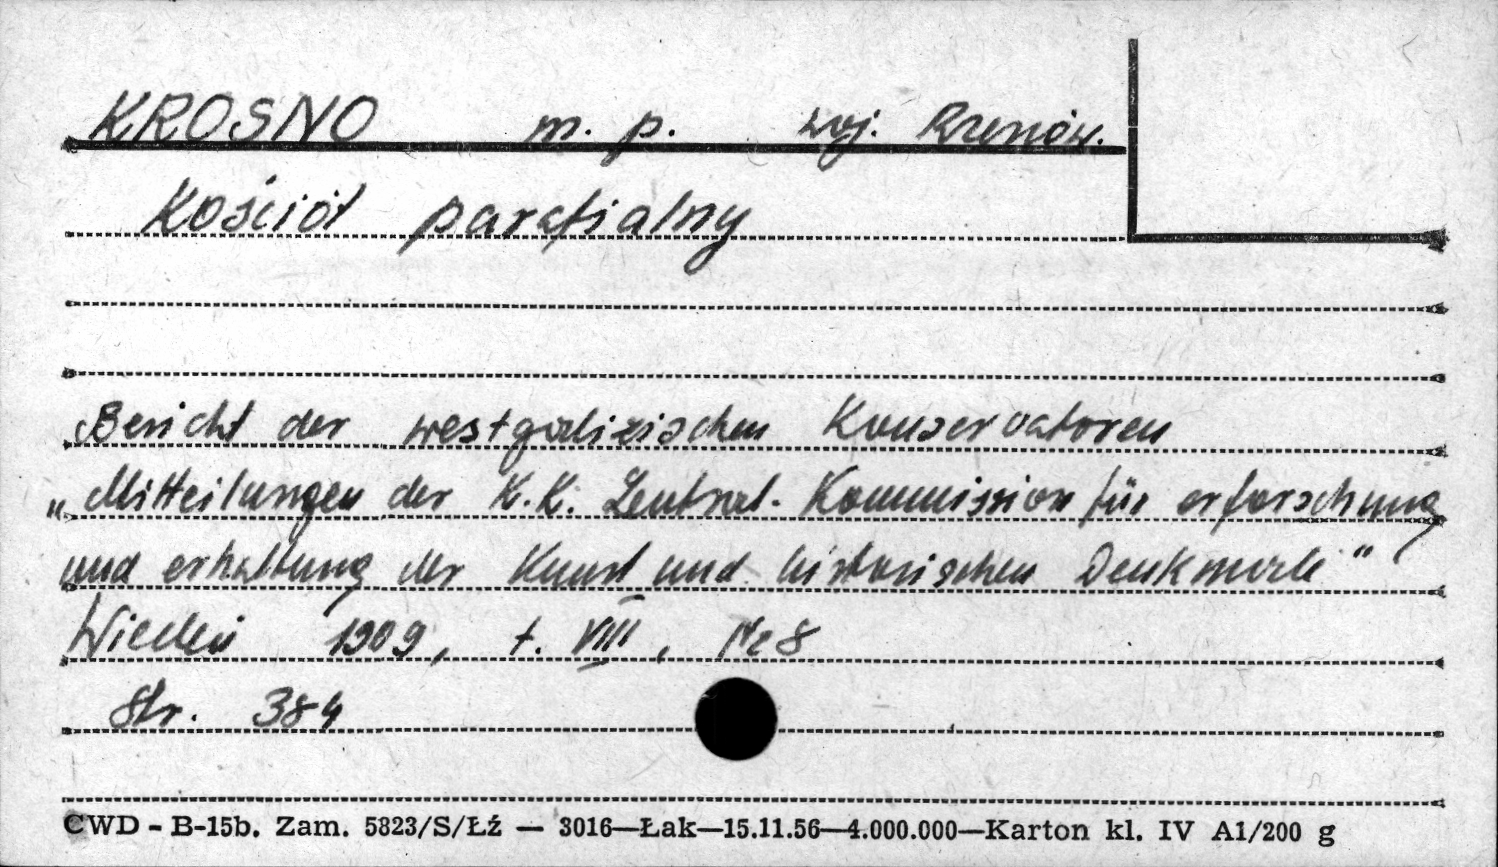 KROSNO m. p. woj. Rzeszów.
Kościół parafialny
Bericht der westgalizischen Konservatoren
„Mitteilungen der K.K. Zentral-Kommission für erforschung
und erhaltung der Kunst und historischen Denkmale"
Wiedeń 1909, t. VIII, Nr 8
Str. 384
CWD - B-15b. Zam. 5823/S/Łź — 3016—Łak—15.11.56—4.000.000—Karton kl. IV A1/200 g